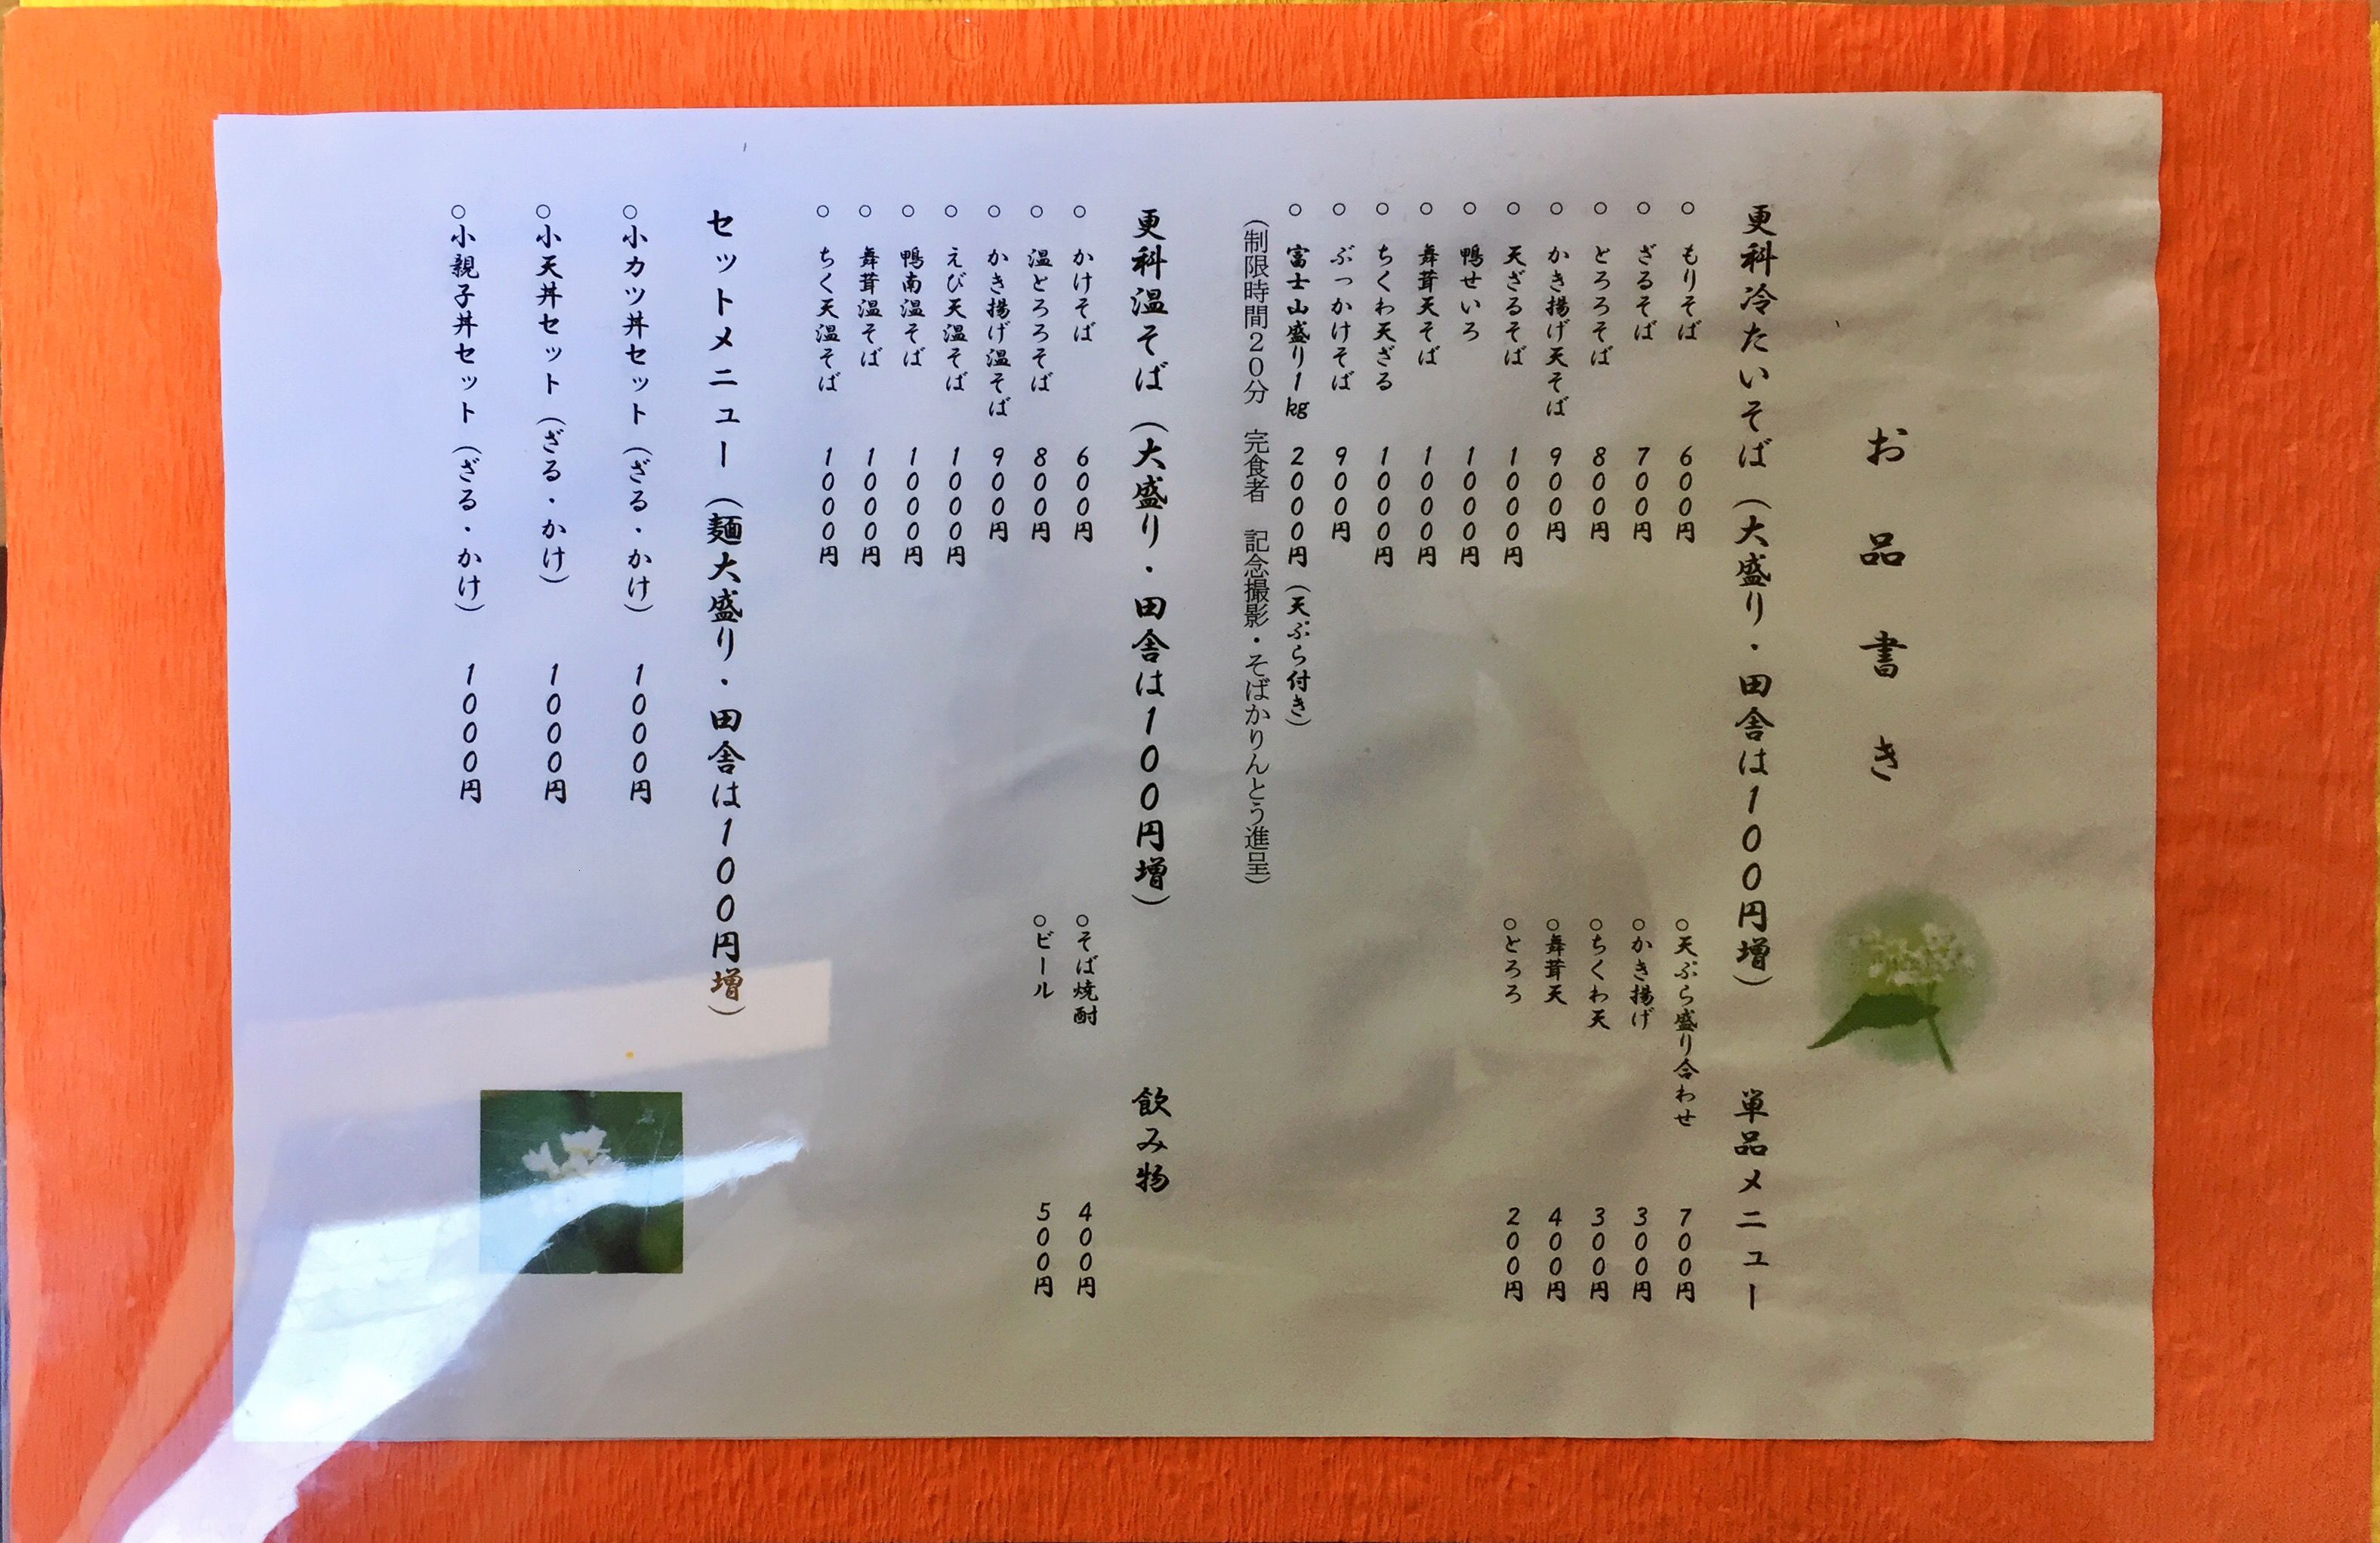 お品書き
更科冷たいそば（大盛り・田舎は100円増）
○ もりそば 600円
○ ざるそば 700円
○ とろろそば 800円
○ かき揚げ天そば 900円
○ 天ざるそば 1000円
○ 鴨せいろ 1000円
○ 舞茸天そば 1000円
○ ちくわ天ざる 1000円
○ ぶっかけそば 900円
○ 富士山盛り1kg 2000円（天ぷら付き）
（制限時間20分 完食者 記念撮影・そばかりんとう進呈）
単品メニュー
○天ぷら盛り合わせ 700円
○かき揚げ 300円
○ちくわ天 300円
○舞茸天 400円
○とろろ 200円
更科温そば（大盛り・田舎は100円増）
○ かけそば 600円
○ 温とろろそば 800円
○ かき揚げ温そば 900円
○ えび天温そば 1000円
○ 鴨南温そば 1000円
○ 舞茸温そば 1000円
○ ちく天温そば 1000円
飲み物
○そば焼酎 400円
○ビール 500円
セットメニュー（麺大盛り・田舎は100円増）
○小カツ丼セット（ざる・かけ） 1000円
○小天丼セット（ざる・かけ） 1000円
○小親子丼セット（ざる・かけ） 1000円